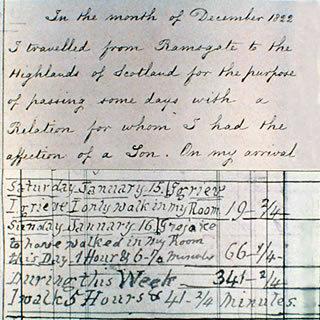 In the month of December 1822
I travelled from Ramsgate to the
Highlands of Scotland for the purpose
of passing some days with a
Relation for whom I had the
affection of a Son. On my arrival
Saturday January 15. I grieve
I grieve I only walk in my Room 19-2/4-
Sunday January 16. I rejoice
to have walked in my Room
this Day 1 Hour & 6-1/4 minutes 66-1/4-
During this Week 341-2/4-
I walk 5 Hours & 41-2/4 Minutes